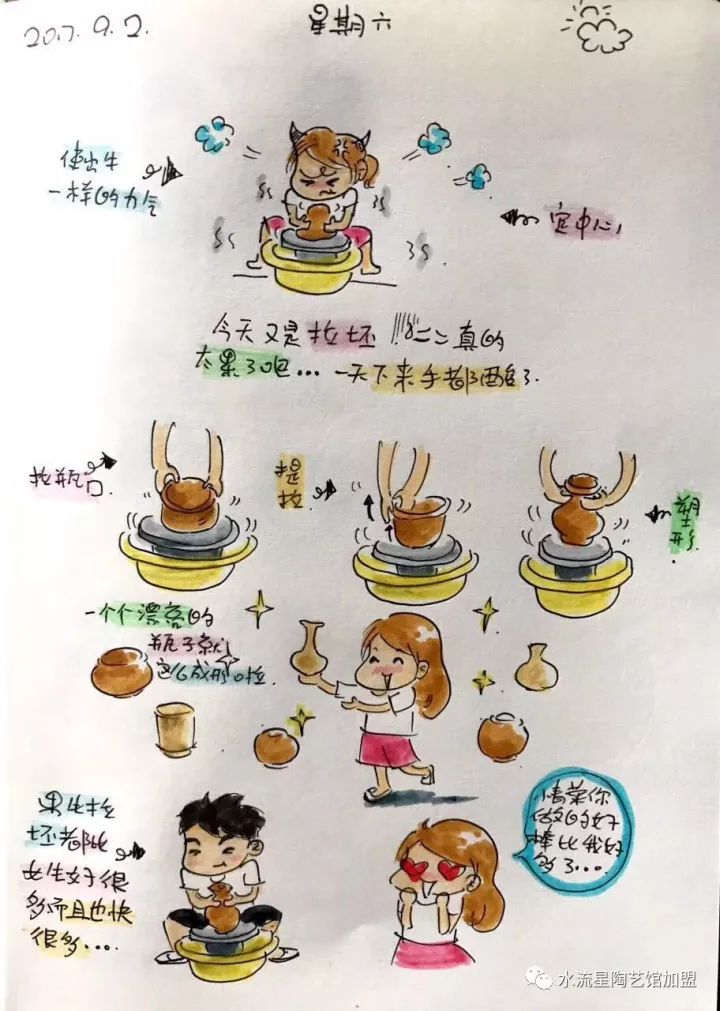 2017.9.2.
星期六
使出牛
一样的力气
定中心!
今天又是拉坯!!!二二真的
太累了吧...一天下来手都酸了.
拉瓶
口
提
拉
塑
形
一个个漂亮的
瓶子就
这么成形啦
男生拉
坯都比
女生好很
多而且也快
很多....
你
做的好
棒比我好
多了....
水流星陶艺馆加盟